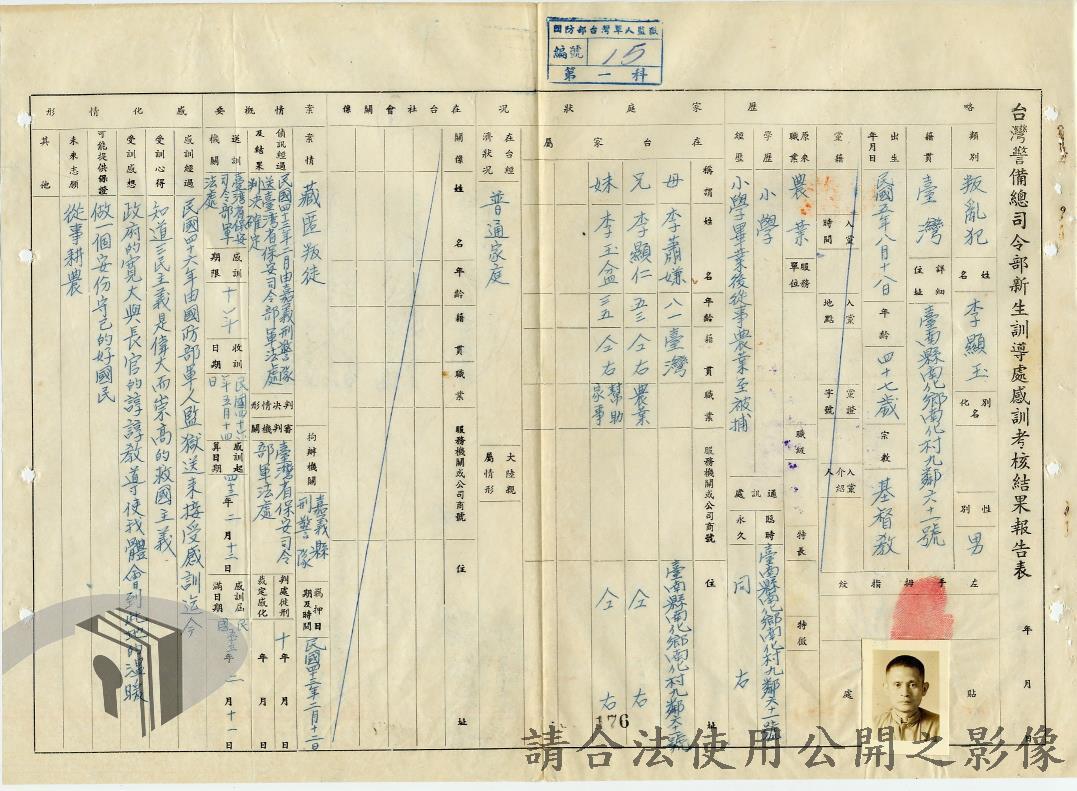 國防部台灣軍人監獄
編號 15
第一科
台灣警備總司令部新生訓導處感訓考核結果報告表
年 月 日
略歷
類別 叛亂犯
姓名 李顯玉
別名化名
性別 男
左手拇指紋
貼處
籍貫 臺灣
詳細住址 臺南縣南化鄉南化村九鄰六十一號
出生年月日 民國五年八月十八日
年齡 四十七歲
宗教 基督教
黨籍
入黨時間
入黨地點
黨證字號
入黨介紹人
原來職業 農業
服務單位
職級
特長
特徵
學歷 小學
經歷 小學畢業後從事農業至被捕
通訊處
臨時 臺南縣南化鄉南化村九鄰六十一號
永久 同右
家庭狀況
在台家屬
稱謂 姓名 年齡 籍貫 職業 服務機關或公司商號 住址
母 李蕭嫌 八一 臺灣 臺南縣南化鄉南化村九鄰六十一號
兄 李顯仁 五三 仝右 農業 仝右
妹 李玉盆 三五 仝右 幫助家事 仝右
在台經濟狀況 普通家庭
大陸親屬情形
在台社會關係
關係 姓名 年齡 籍貫 職業 服務機關或公司商號 住址
案情概要
案情 藏匿叛徒
拘辦機關 嘉義縣刑警隊
羈押日期及時間 民國四十三年二月十二日
偵訊經過及結果 民國四十三年二月由嘉義刑警隊送臺灣省保安司令部軍法處判決確定
判決情形
審判機關 臺灣省保安司令部軍法處
判處徒刑 十年 月
裁定感化 年 月
送訓機關 臺灣省保安司令部軍法處
感訓期限 十年
收訓日期 民國四十六年五月十四日
感訓起算日期 四三年二月十二日
感訓屆滿日期 民國五三年二月十一日
感化情形
感訓經過 民國四十六年由國防部軍人監獄送來接受感訓迄今
受訓心得 知道三民主義是偉大而崇高的救國主義
受訓感想 政府的寬大與長官的諄諄教導使我體會到此地的溫暖
可能提供保證 做一個安份守己的好國民
未來志願 從事耕農
其他
176
請合法使用公開之影像